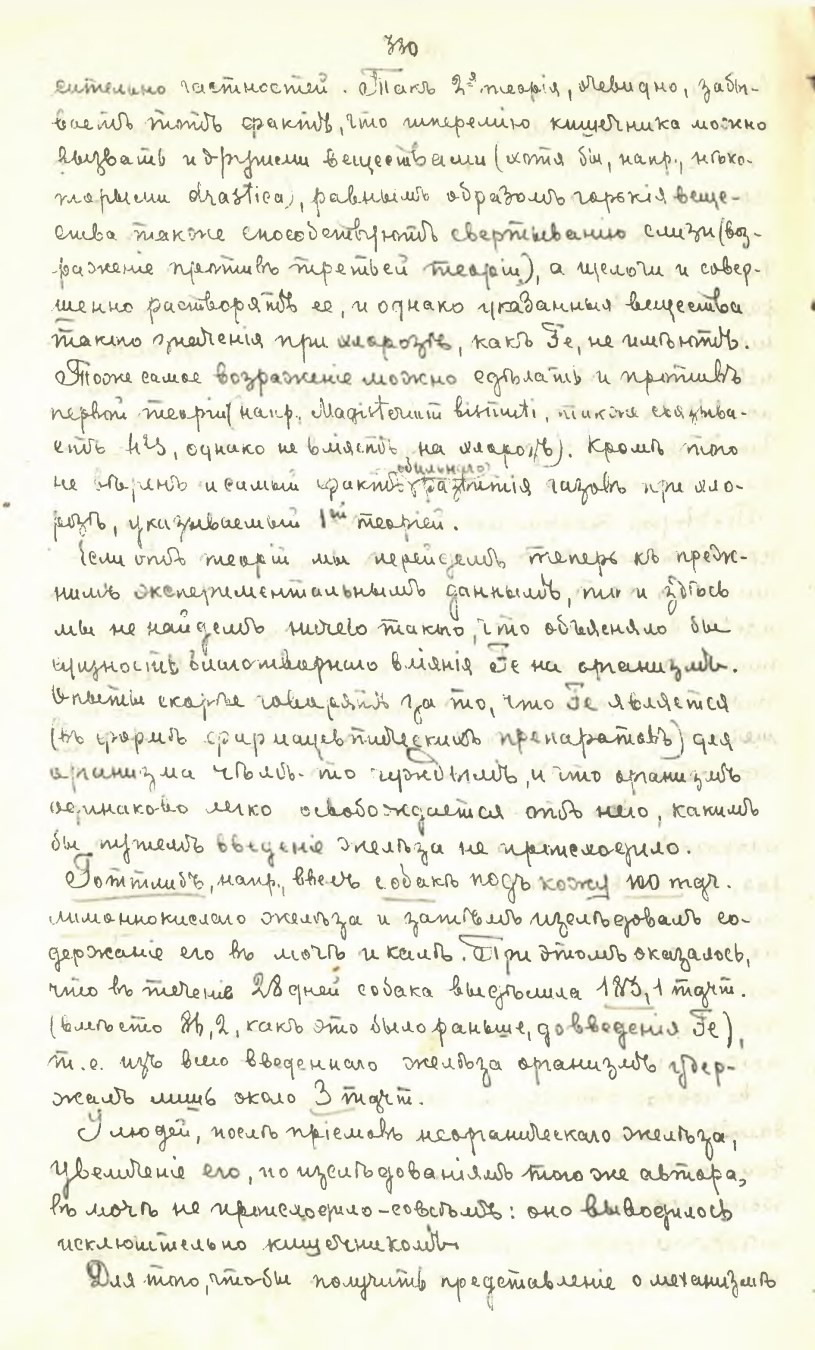 330
сительно частностей. Такъ 2я теорія, очевидно, забы-
ваетъ тотъ фактъ, что гиперемію кишечника можно
вызвать и другими веществами (хотя бы, напр., нѣко-
торыми drastica), равнымъ образомъ горькія веще-
ства также способствуютъ свертыванію слизи (воз-
раженіе противъ третьей теоріи), а щелочи и совер-
шенно растворятъ ее, и однако указанныя вещества
такого значенія при хлорозѣ, какъ Fe, не имѣютъ.
Тоже самое возраженіе можно сдѣлать и противъ
первой теоріи (напр., Magisterium bismuti, также связыва-
етъ H2S, однако не вліяетъ на хлорозъ). Кромѣ того
не вѣренъ и самый фактъ обильнаго развитія газовъ при хло-
розѣ, указываемый 1ой теоріей.
Если отъ теорій мы перейдемъ теперь къ преж-
нимъ экспериментальнымъ даннымъ, то и здѣсь
мы не найдемъ ничего такого, что объясняло бы
сущность благотворнаго вліянія Fe на организмъ.
Опыты скорѣе говорятъ за то, что Fe является
(въ формѣ фармацевтическихъ препаратовъ) для
организма чѣмъ-то чуждымъ, и что организмъ
одинаково легко освобождается отъ него, какимъ
бы путемъ введеніе желѣза не происходило.
Готтлибъ, напр., ввелъ собакѣ подъ кожу 100 mgr.
лимоннокислаго желѣза и затѣмъ изслѣдовалъ со-
держаніе его въ мочѣ и калѣ. При этомъ оказалось,
что въ теченіе 28 дней собака выдѣлила 183,1 mgrm.
(вмѣсто 86,2, какъ это было раньше, до введенія Fe),
т.е. изъ всего введеннаго желѣза организмъ удер-
жалъ лишь около 3 mgrm.
У людей, послѣ пріемовъ неорганическаго желѣза,
увеличеніе его, по изслѣдованіямъ того же автора,
въ мочѣ не происходило-совсѣмъ: оно выводилось
исключительно кишечникомъ.
Для того, чтобы получить представленіе о механизмѣ